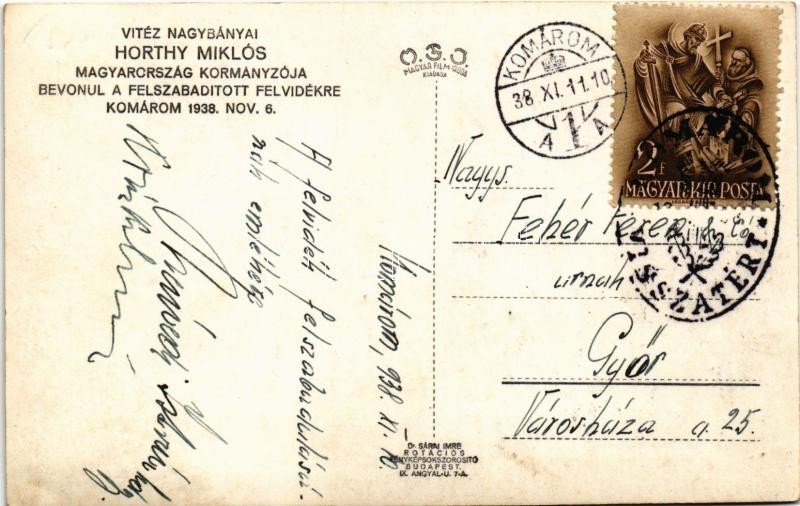 VITÉZ NAGYBÁNYAI
HORTHY MIKLÓS
MAGYARORSZÁG KORMÁNYZÓJA
BEVONUL A FELSZABADITOTT FELVIDÉKRE
KOMÁROM 1938. NOV. 6.
O.S.O.
MAGYAR FILM IRODA
KIADÁSA
KOMÁROM
38 XI. 11. 10
1
A A
2 f
MAGYAR KIR. POSTA
VISSZATÉRT
Komárom, 938. XI. 10
A felvidék felszabadulásá-
nak emlékére
Nagys.
Fehér Ferenc
urnak
Győr
Városháza a. 25.
Dr SÁRAI IMRE
ROTÁCIÓS
FÉNYKÉPSOKSZOROSITÓ
BUDAPEST.
IX. ANGYAL-U. 7-A.